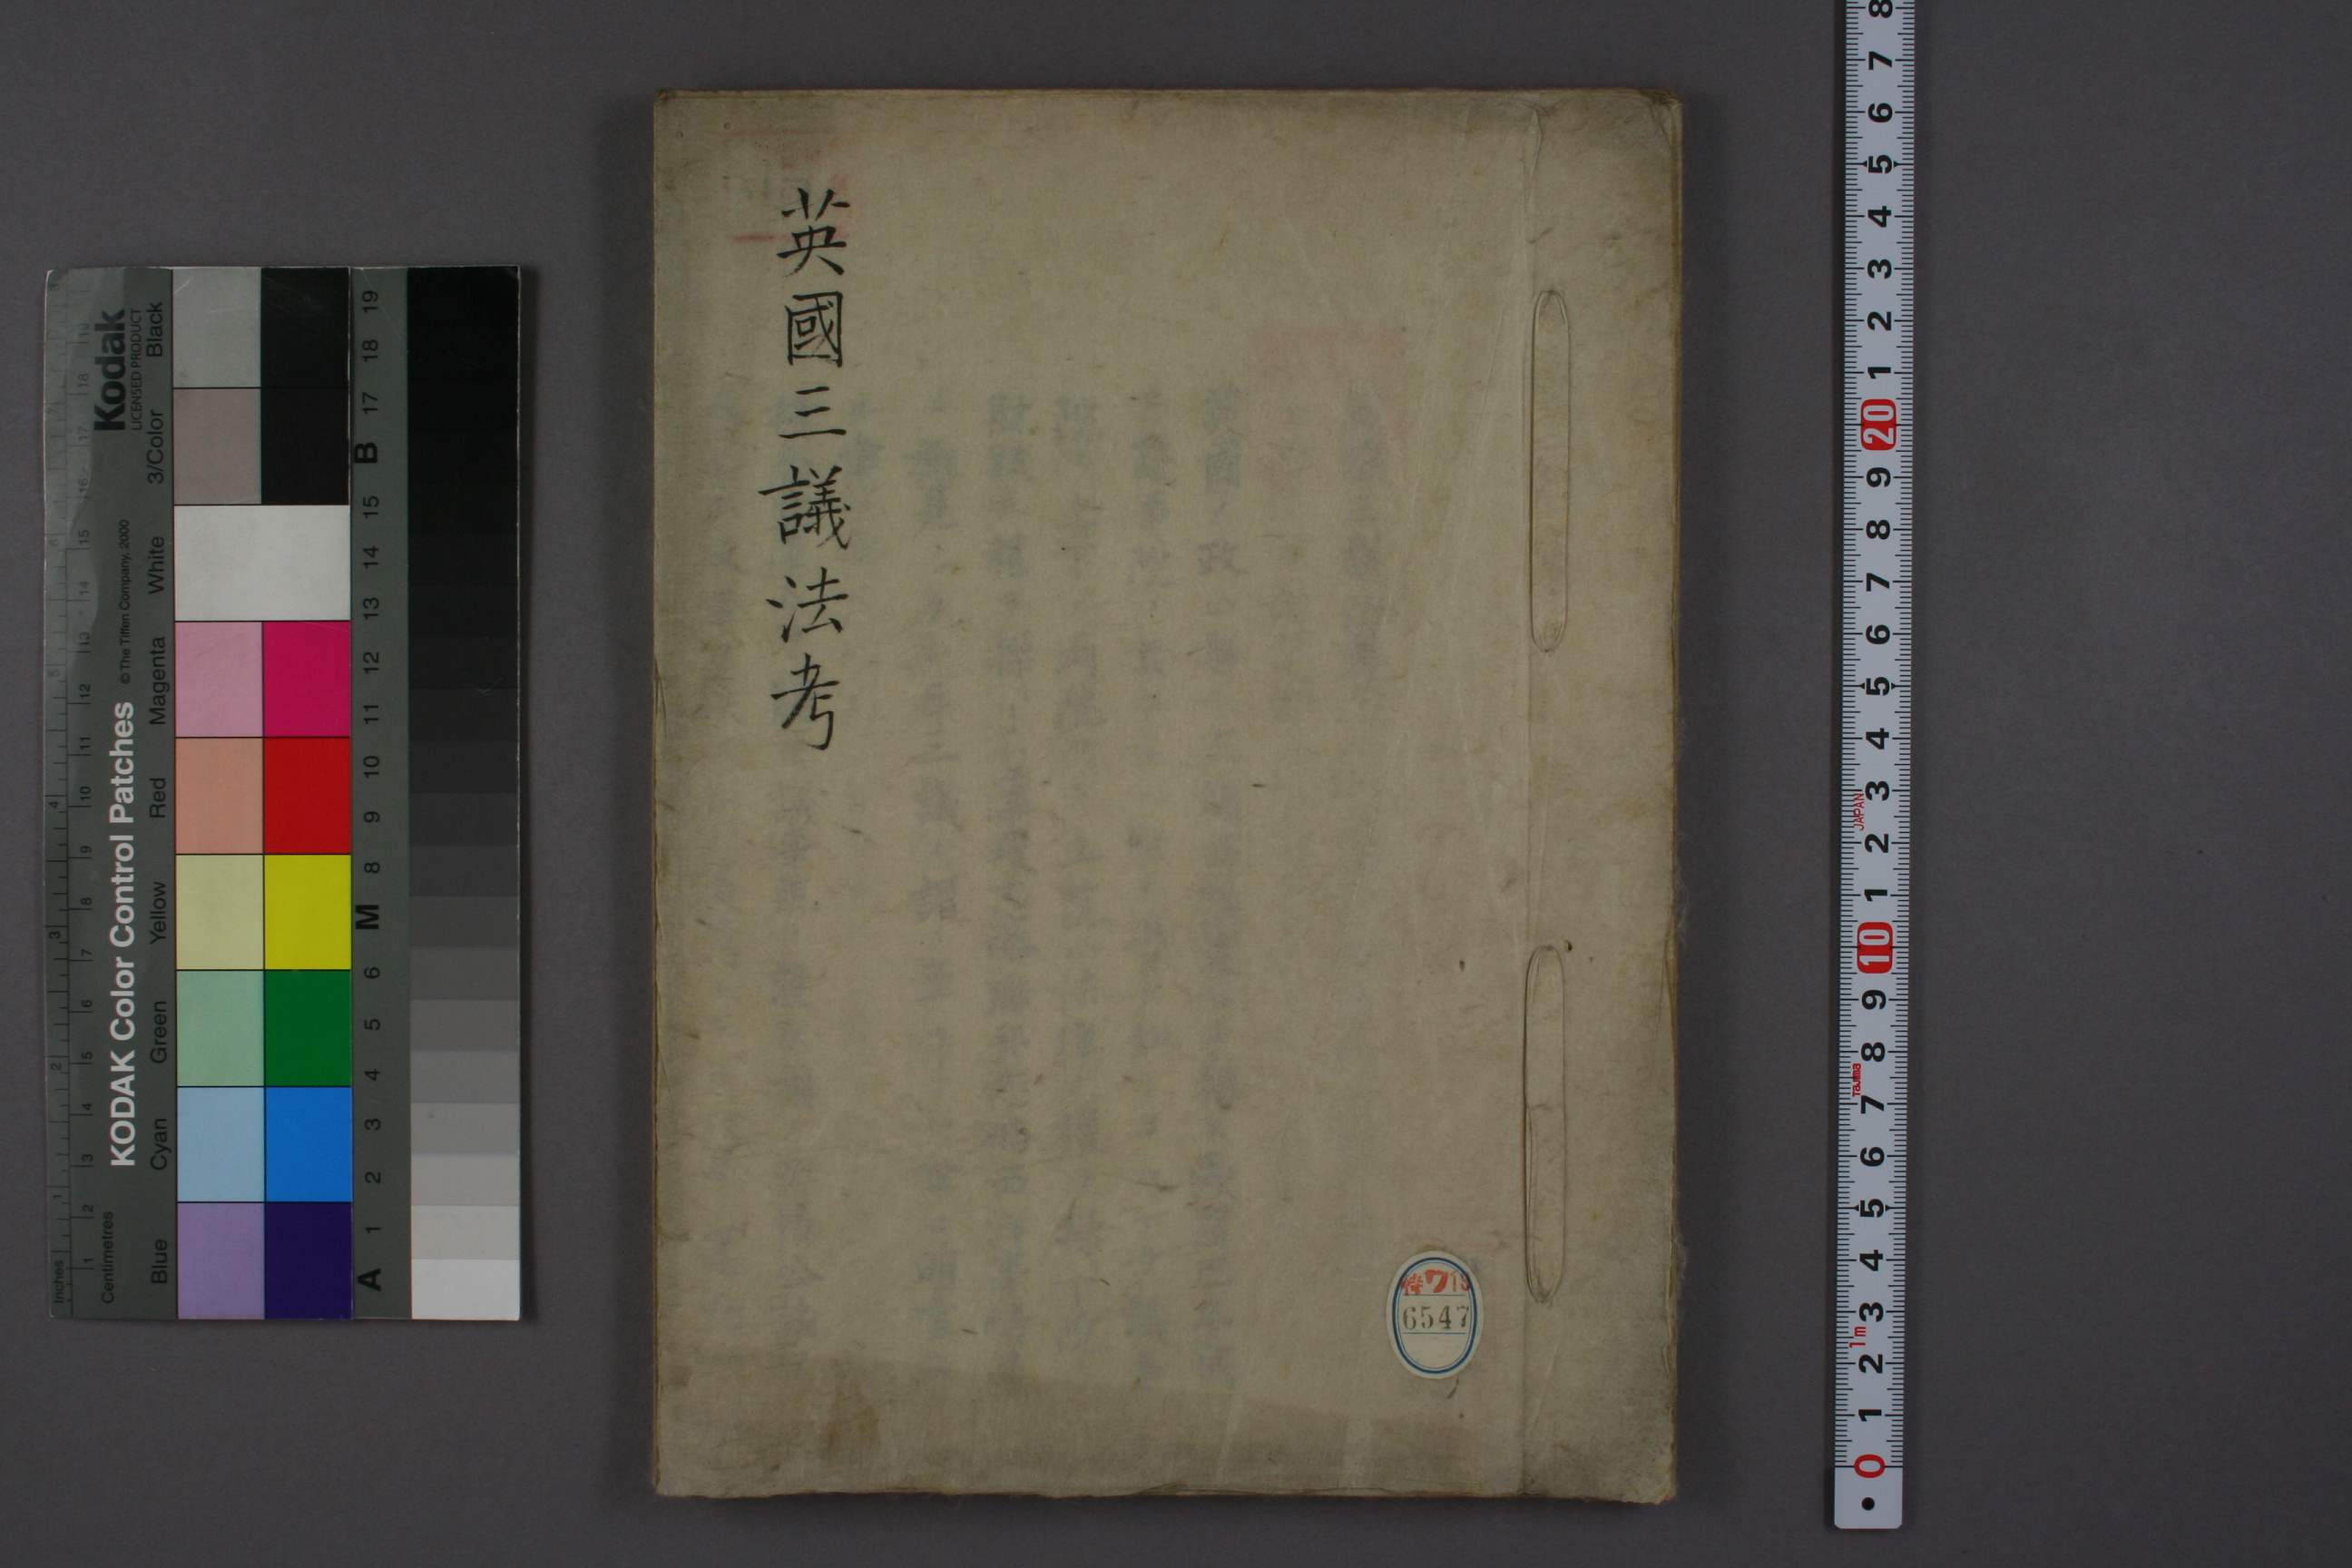 英國三議法考
特ワ19
6547
KODAK Color Control Patches
© The Tiffen Company, 2000
Kodak
LICENSED PRODUCT
Inches
Centimetres
Blue Cyan Green Yellow Red Magenta White 3/Color Black
A 1 2 3 4 5 6 M 8 9 10 11 12 13 14 15 B 17 18 19
0 1 2 3 4 5 6 7 8 9 10 1 2 3 4 5 6 7 8 9 20 1 2 3 4 5 6 7 8
1m
Tajima
JAPAN